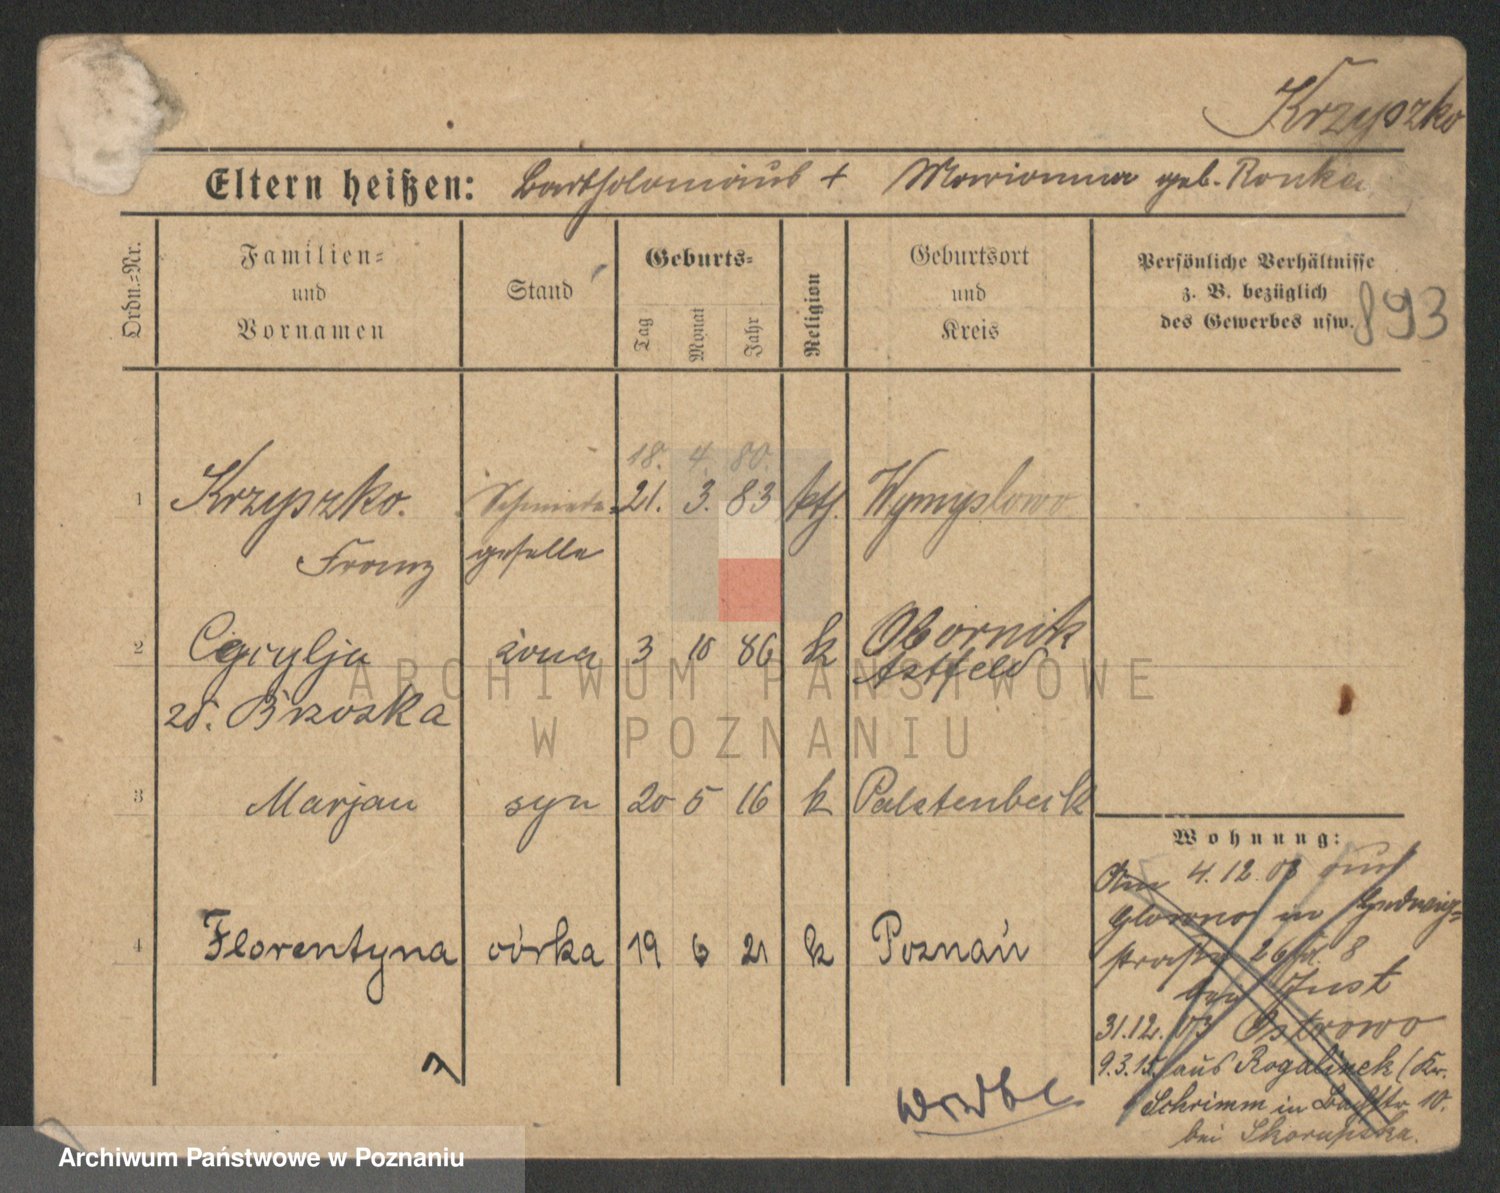 Krzyszko
Eltern heißen: Bartholomäus + Marianna geb. Ronka
Ordn.=Nr.
Familien=
und
Vornamen
Stand
Geburts=
Tag
Monat
Jahr
Religion
Geburtsort
und
Kreis
Persönliche Verhältnisse
z. B. bezüglich
des Gewerbes usw.
893
18. 4. 80.
1 Krzyszko. Schmiede= 21. 3. 83 kth. Wymyslowo
Franz geselle
2 Cecylja żona 3 10 86 k Obornik
Astfeld
zd. Brzoska
3 Marjan syn 20 5 16 k
4 Florentyna córka 19 6 21 k Poznań
Wohnung:
Am 4.12.03 aus
Glowno in Hedwig=
straße 26 8
bei Just
31.12.03 Ostrowo
9.3.15 aus Rogalinek (Kr.
Schrimm in Bachstr 10.
bei Skorupska.
ARCHIWUM PAŃSTWOWE
W POZNANIU
Archiwum Państwowe w Poznaniu